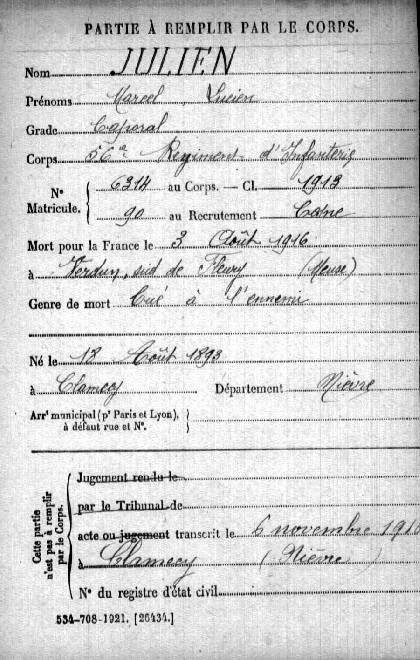 PARTIE À REMPLIR PAR LE CORPS.
Nom JULIEN
Prénoms Marcel Lucien
Grade Caporal
Corps 56e Regiment d'Infanterie
N° Matricule. 6314 au Corps. — Cl. 1913
90 au Recrutement Cosne
Mort pour la France le 3 Août 1916
à Verdun, sud de Fleury (Meuse)
Genre de mort Tué à l'ennemi
Né le 18 Août 1893
à Clamecy Département Nièvre
Arr' municipal (p' Paris et Lyon),
à défaut rue et N°.
Cette partie n'est pas à remplir par le Corps.
Jugement rendu le
par le Tribunal de
acte ou jugement transcrit le 6 novembre 191
à Clamecy (Nièvre)
N° du registre d'état civil
534-708-1921. [26434.]